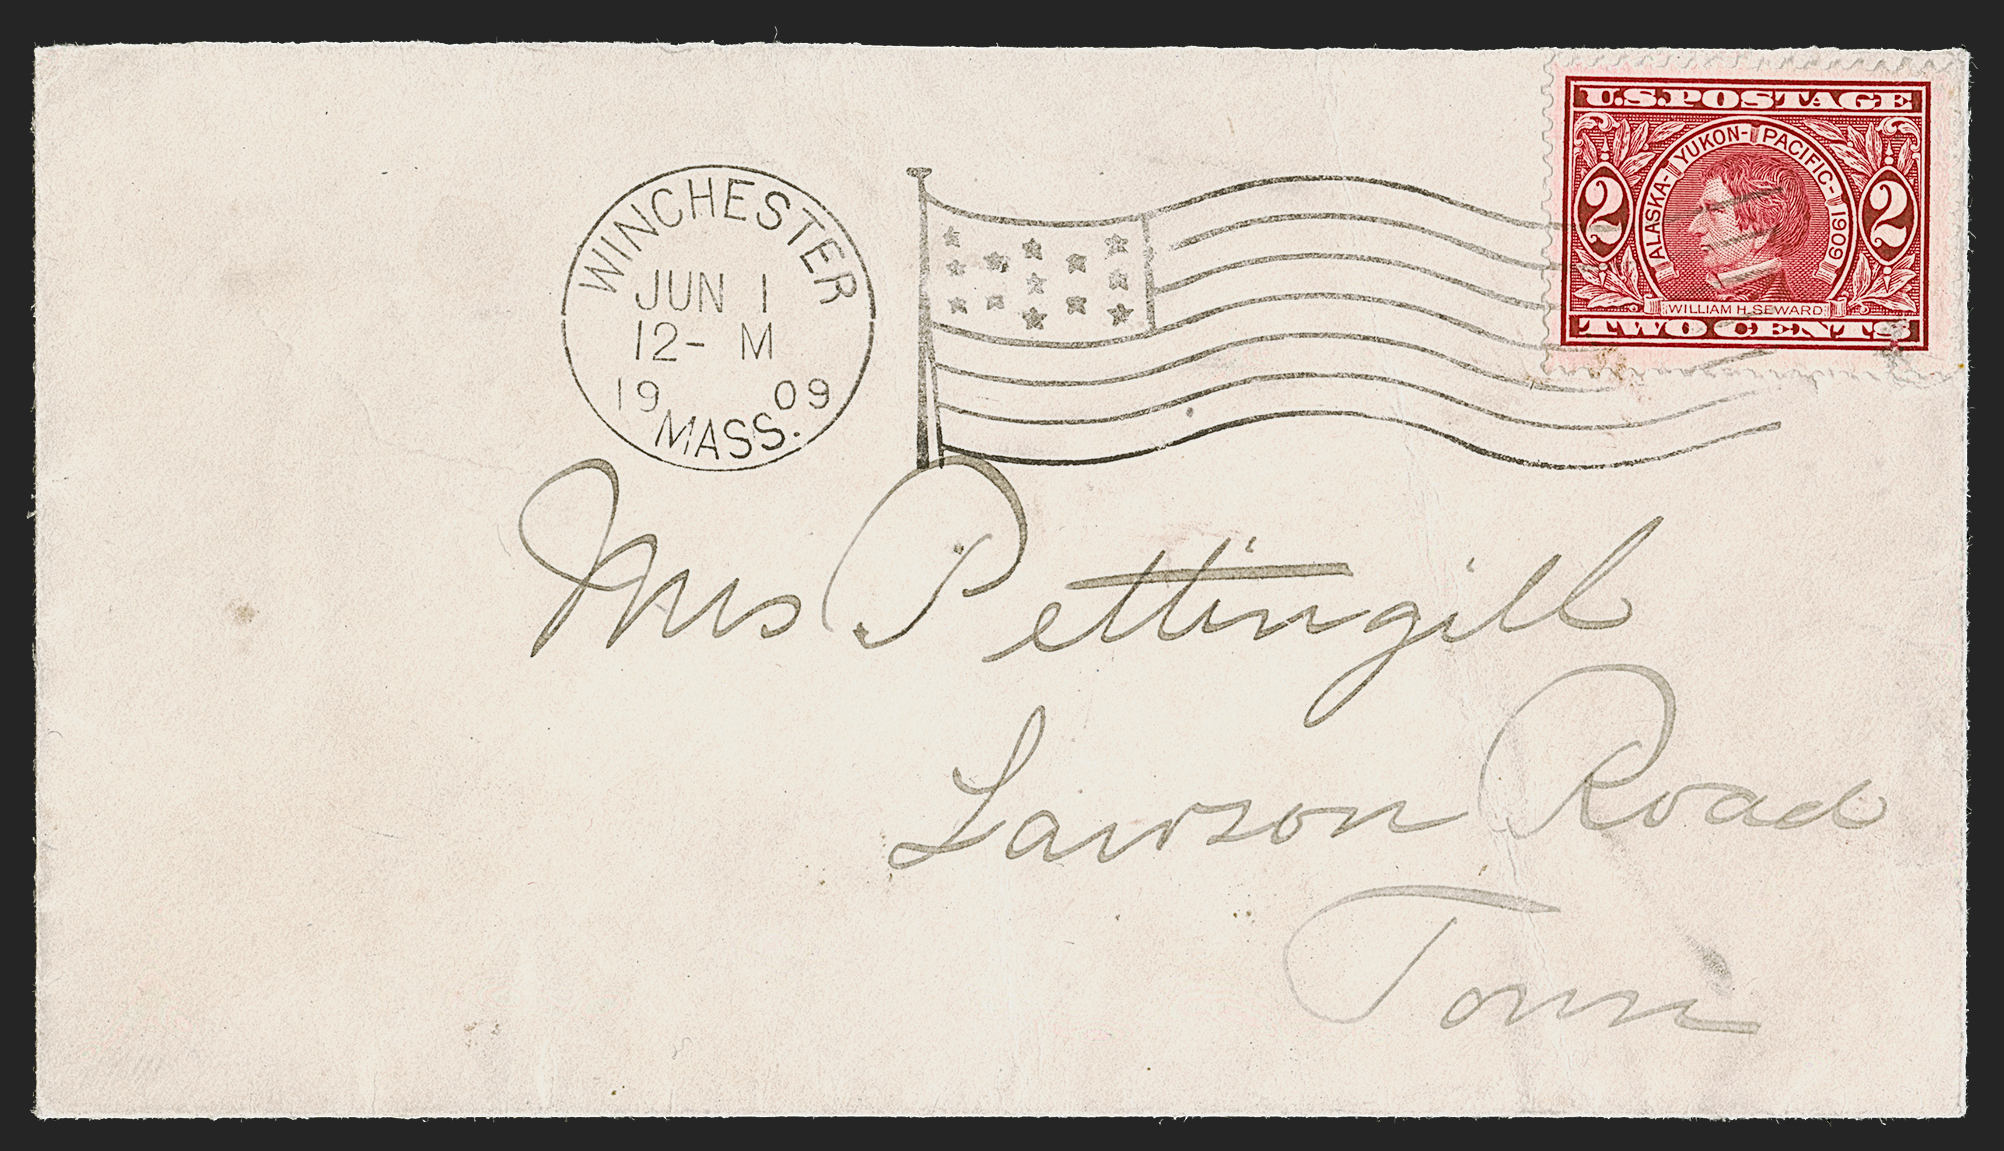 U.S. POSTAGE
ALASKA-YUKON-PACIFIC-1909
2 2
WILLIAM H. SEWARD
TWO CENTS
WINCHESTER
JUN 1
12- M
19 09
MASS.
Mrs Pettingill
Lawson Road
Town